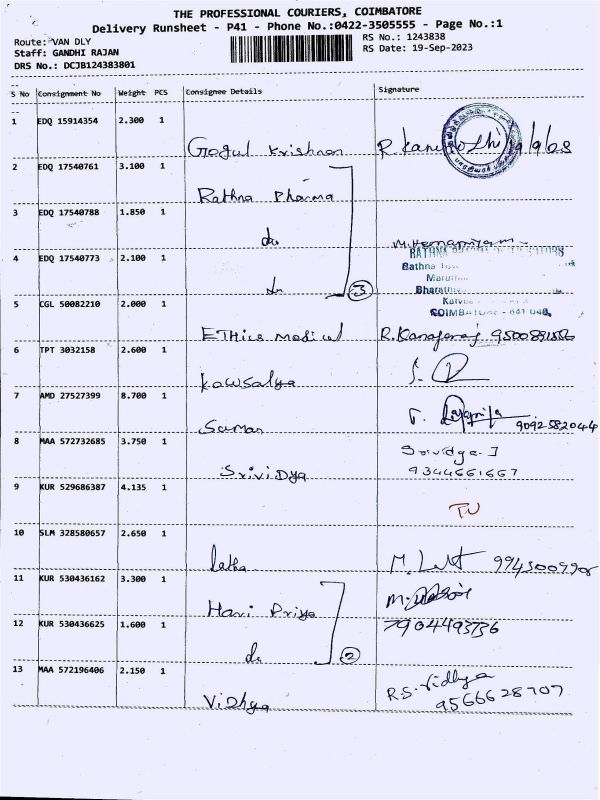 THE PROFESSIONAL COURIERS, COIMBATORE
Delivery Runsheet - P41 - Phone No.:0422-3505555 - Page No.:1
Route: VAN DLY
RS No.: 1243838
Staff: GANDHI RAJAN
RS Date: 19-Sep-2023
DRS No.: DCJB124383801
S No Consignment No Weight PCS Consignee Details Signature
1 EDQ 15914354 2.300 1
Gogul Krishnan
2 EDQ 17540761 3.100 1
Rathna Pharma
3 EDQ 17540788 1.850 1
do
4 EDQ 17540773 2.100 1
RATHNA
Rathna
Bharathi
do 3
COIMBATORE - 641 048.
5 CGL 50082210 2.000 1
Ethics Medical R. Kanagaraj
6 TPT 3032158 2.600 1
Kowsalya
7 AMD 27527399 8.700 1
Suman 9092582044
8 MAA 572732685 3.750 1
Srividya-J
Srividya 9344661667
9 KUR 529686387 4.135 1
10 SLM 328580657 2.650 1
Latha M.
11 KUR 530436162 3.300 1
Hari Priya
12 KUR 530436625 1.600 1
7904493736
do 2
13 MAA 572196406 2.150 1
R.S. Vidhya
Vidhya 9566628707